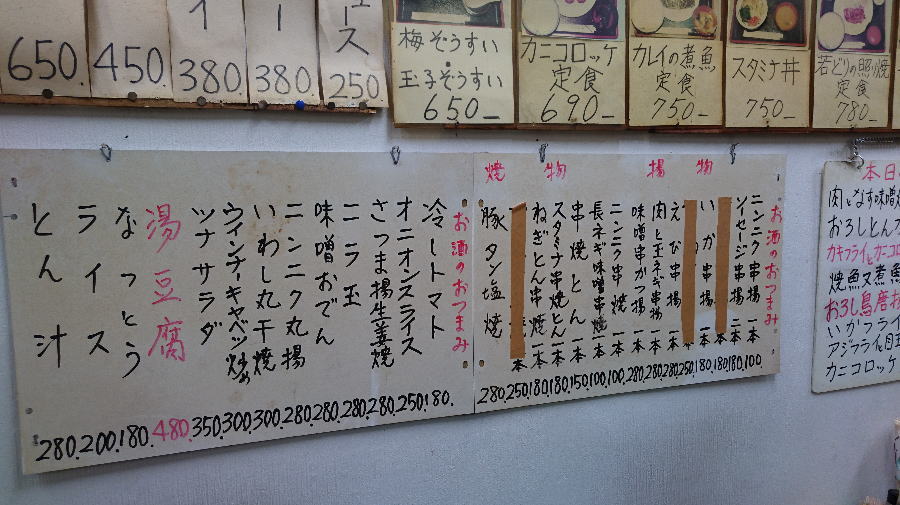 650.
450.
380.
380.
ュース
250
梅ぞうすい
玉子ぞうすい
650—
カニコロッケ
定食
690—
カレイの煮魚
定食
750—
スタミナ丼
750—
若どりの照焼
定食
780—
お酒のおつまみ
冷しトマト 180.
オニオンスライス 250.
さつま揚生姜焼 280.
ニラ玉 280.
味噌おでん 280.
ニンニク丸揚 280.
いわし丸干焼 300.
ウインナーキャベツ炒め 300.
ツナサラダ 350.
湯豆腐 480.
なっとう 180.
ライス 200.
とん汁 280.
お酒のおつまみ
揚物
ニンニク串揚 一本 100.
ソイセージ串揚 二本 180.
一本 180.
いか串揚 一本 180.
本 250.
えび串揚 一本 280.
肉と玉ネギ串揚 一本 280.
味噌串かつ揚 一本 280.
焼物
ニンニク串焼 一本 100.
長ネギ味噌串焼 一本 100.
串焼とん 一本 150.
スタミナ串焼とん 一本 180.
ねぎとん串焼 一本 180.
本 250.
豚タン塩焼 280.
本日
肉となす味噌
おろしとんカ
カキフライとカニコロ
焼魚又煮魚
おろし鳥唐揚
いかフライ
アジフライと目玉
カニコロッケ